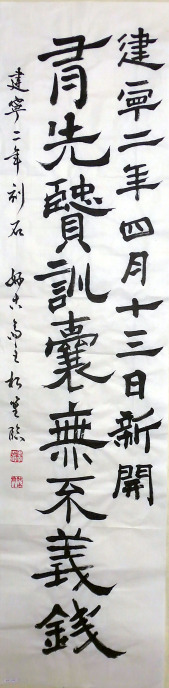 建寧二年四月十三日新開
胥先贒訓囊無不義錢
建寧二年刻石